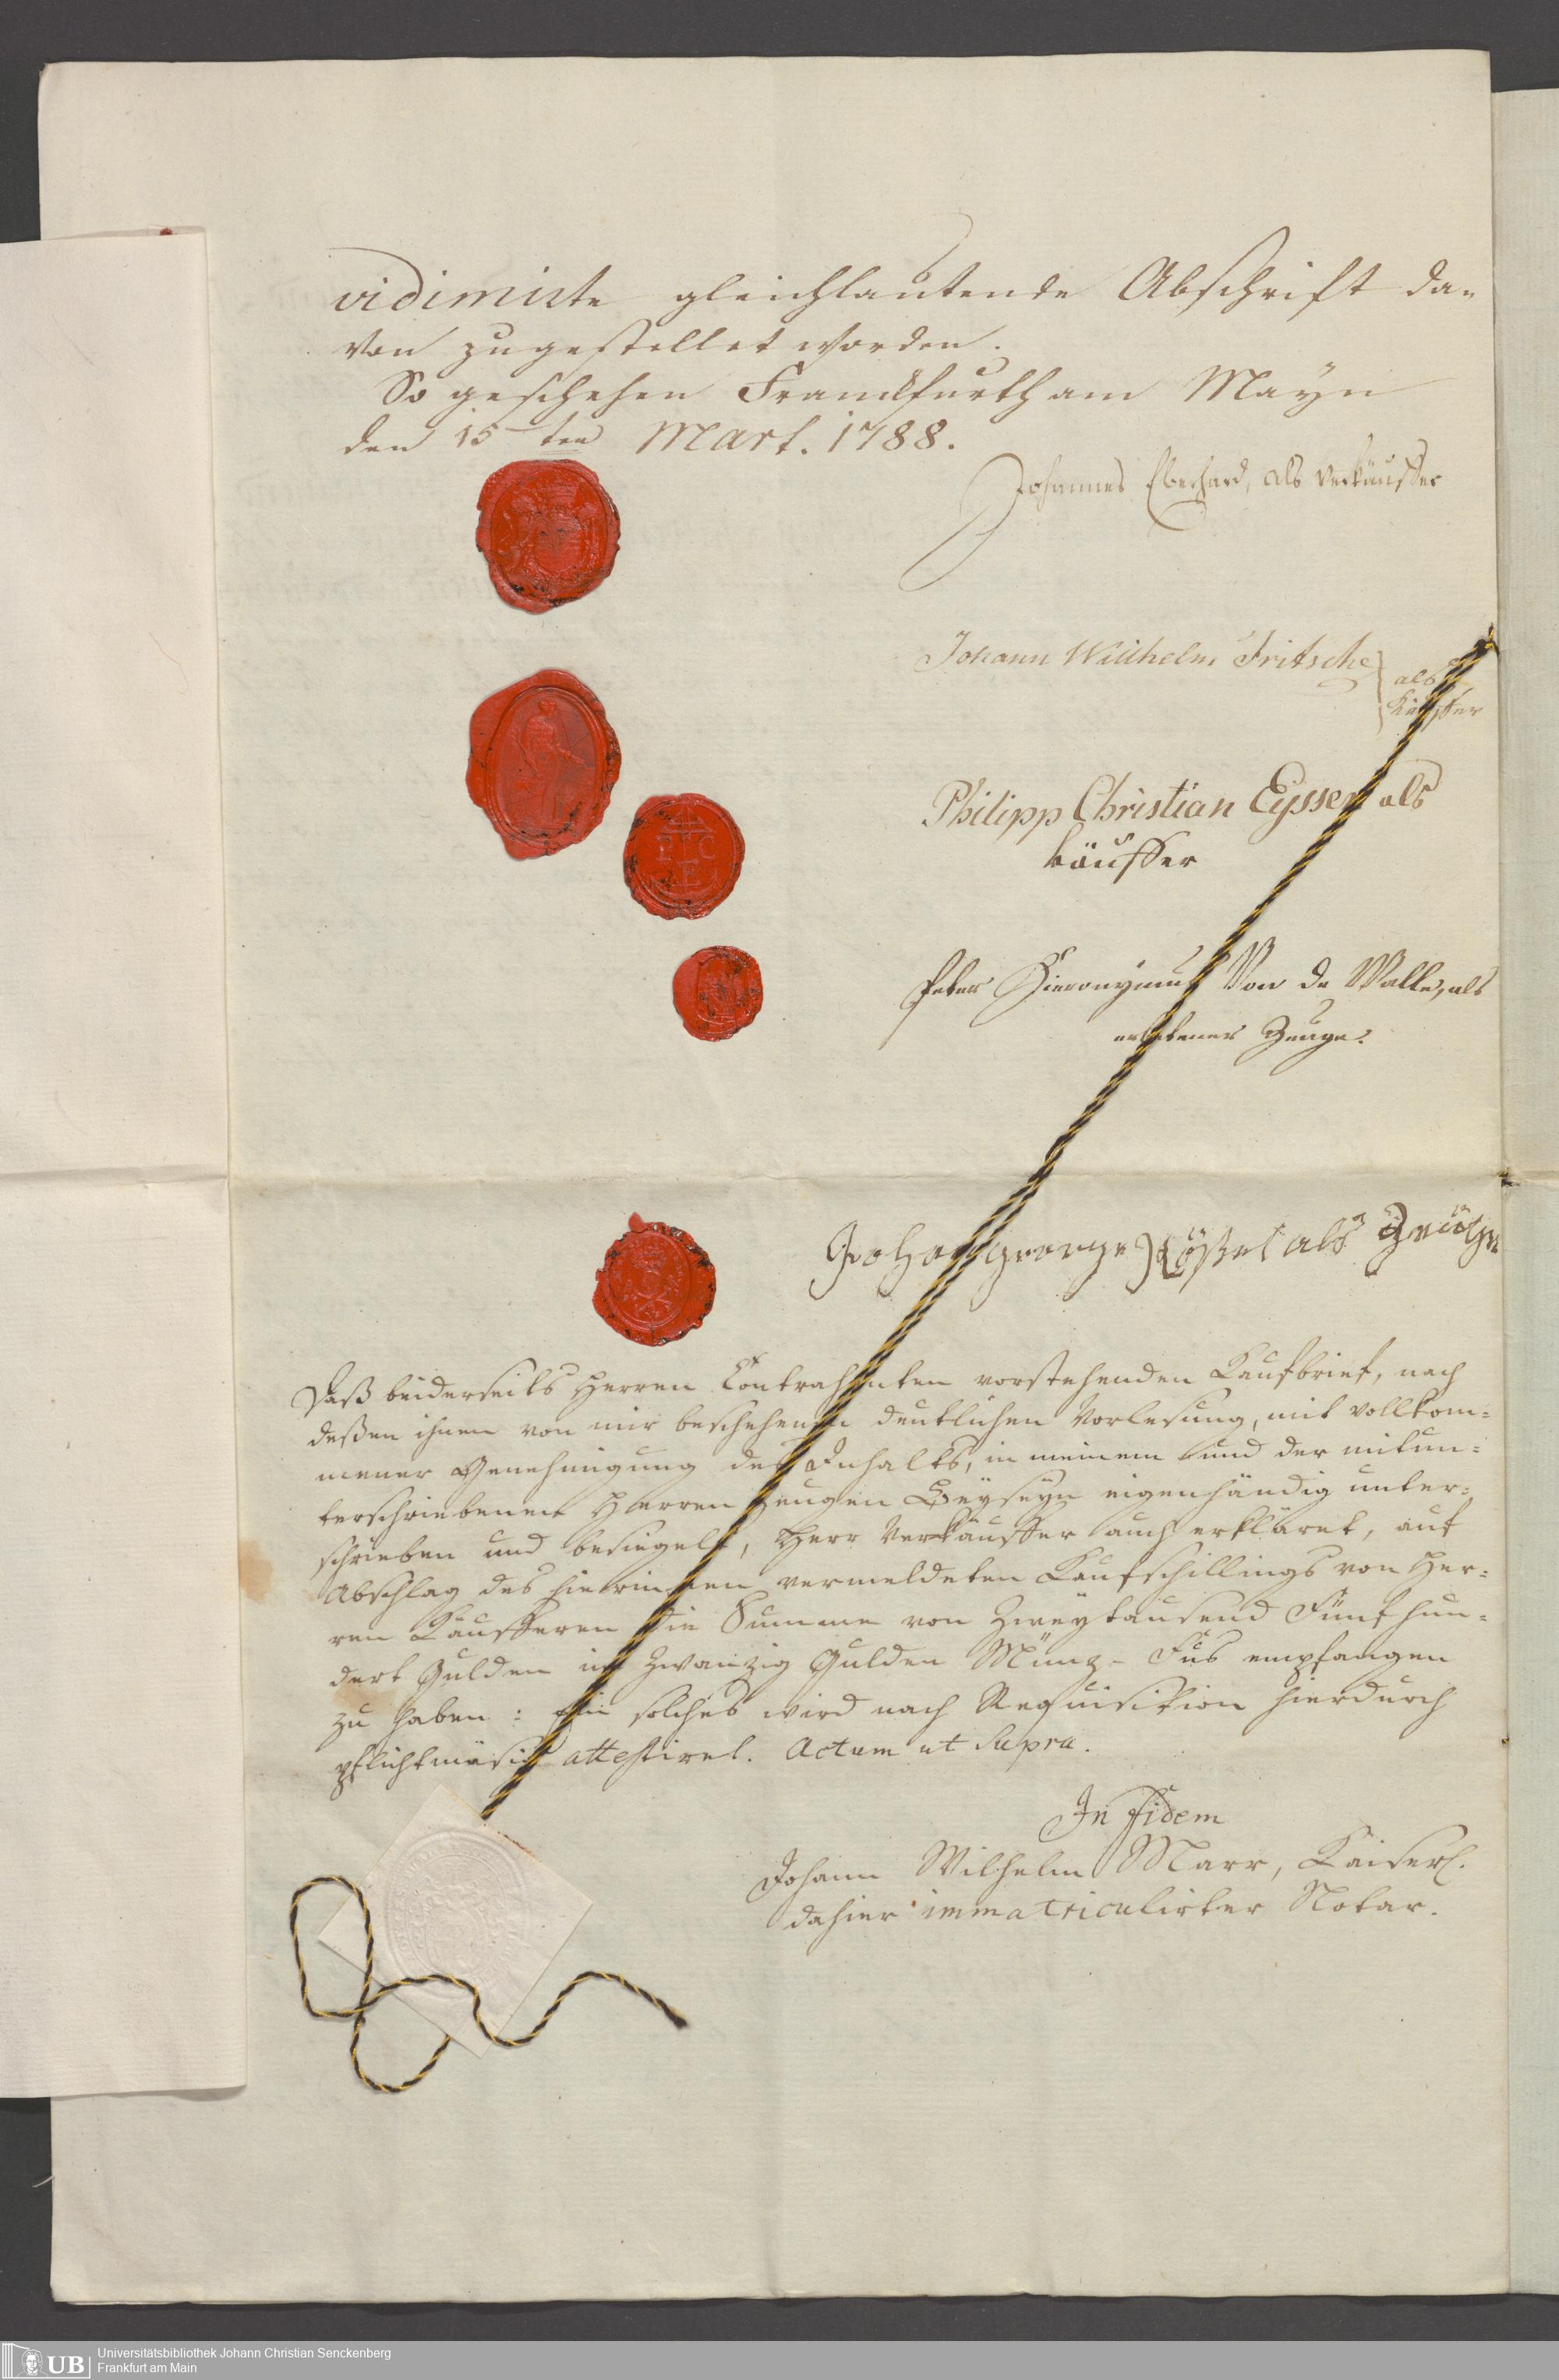 vidimirte gleichlautende Abschrift da=
von zugestellet worden.
So geschehen Franckfurth am Mayn
den 15ten Mart. 1788.
Johannes Eberhard, als Verkäuffer
Johann Willhelm Fritsche
als
Käuffer
Philipp Christian Eyssen als
käuffer
Peter Hieronÿmus Von de Walle, als
erbetener Zeuge.
Johan george Rößel als Zeuge
Daß beiderseits Herren Contrahenten vorstehenden Kaufbrief, nach
deßen ihnen von mir beschehenen deutlichen Vorlesung, mit vollkom=
mener Genehmigung des Inhalts, in meinem und der mitun=
terschriebenen Herren Zeugen Beÿseÿn eigenhändig unter=
schrieben und besiegelt, Herr Verkäuffer auch erkläret, auf
Abschlag des hierinnen vermeldeten Kaufschillings von Her=
ren Käufferen die Summe von Zweÿtausend Fünf hun=
dert Gulden im Zwanzig Gulden Münz-Fus empfangen
zu haben: Ein solches wird nach Requisition hierdurch
pflichtmäsig attestiret. Actum ut Supra.
In fidem
Johann Wilhelm Marx, Kaiserl.
dahier immatriculirter Notar.
P C
E
UB
Universitätsbibliothek Johann Christian Senckenberg
Frankfurt am Main